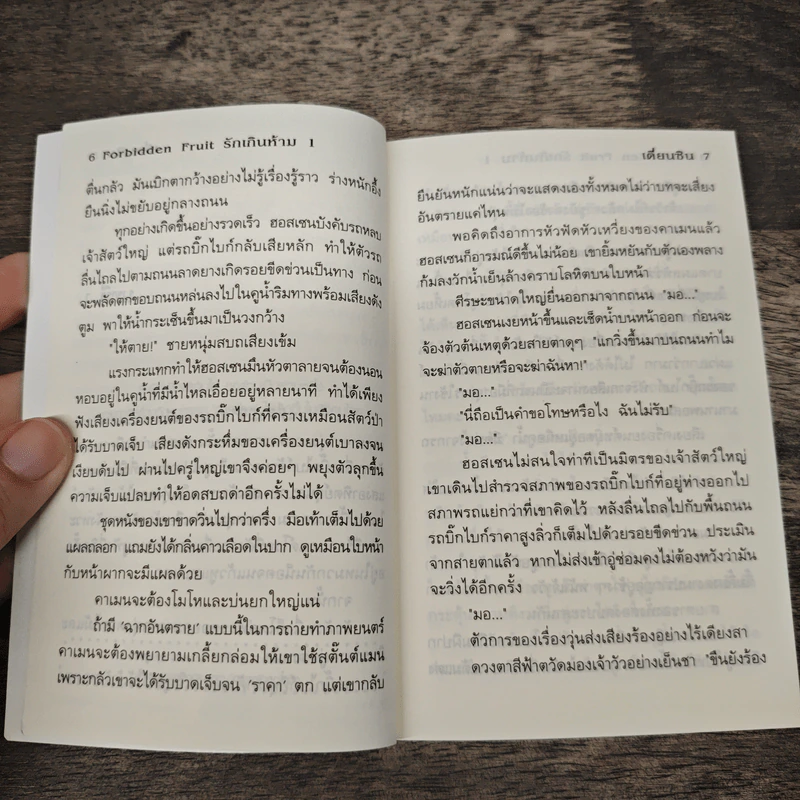 6 Forbidden Fruit รักเกินห้าม 1
ตื่นกลัว มันเบิกตากว้างอย่างไม่รู้เรื่องรู้ราว ร่างหนักอึ้ง
ยืนนิ่งไม่ขยับอยู่กลางถนน
ทุกอย่างเกิดขึ้นอย่างรวดเร็ว ฮอสเซนบังคับรถหลบ
เจ้าสัตว์ใหญ่ แต่รถบิ๊กไบก์กลับเสียหลัก ทำให้ตัวรถ
ลื่นไถลไปตามถนนลาดยางเกิดรอยขีดข่วนเป็นทาง ก่อน
จะพลัดตกขอบถนนหล่นลงไปในคูน้ำริมทางพร้อมเสียงดัง
ตูม พาให้น้ำกระเซ็นขึ้นมาเป็นวงกว้าง
"ให้ตาย!" ชายหนุ่มสบถเสียงเข้ม
แรงกระแทกทำให้ฮอสเซนมึนหัวตาลายจนต้องนอน
หอบอยู่ในคูน้ำที่มีน้ำไหลเอื่อยอยู่หลายนาที ทำได้เพียง
ฟังเสียงเครื่องยนต์ของรถบิ๊กไบก์ที่ครางเหมือนสัตว์ป่า
ได้รับบาดเจ็บ เสียงดังกระหึ่มของเครื่องยนต์เบาลงจน
เงียบดับไป ผ่านไปครู่ใหญ่เขาจึงค่อยๆ พยุงตัวลุกขึ้น
ความเจ็บแปลบทำให้อดสบถด่าอีกครั้งไม่ได้
ชุดหนังของเขาขาดวิ่นไปกว่าครึ่ง มือเท้าเต็มไปด้วย
แผลถลอก แถมยังได้กลิ่นคาวเลือดในปาก ดูเหมือนใบหน้า
กับหน้าผากจะมีแผลด้วย
คาเมนจะต้องโมโหและบ่นยกใหญ่แน่
ถ้ามี 'ฉากอันตราย' แบบนี้ในการถ่ายทำภาพยนตร์
คาเมนจะต้องพยายามเกลี้ยกล่อมให้เขาใช้สตั๊นต์แมน
เพราะกลัวเขาจะได้รับบาดเจ็บจน 'ราคา' ตก แต่เขากลับ
เตี่ยนซิน 7
ยืนยันหนักแน่นว่าจะแสดงเองทั้งหมดไม่ว่าบทจะเสี่ยง
อันตรายแค่ไหน
พอคิดถึงอาการหัวฟัดหัวเหวี่ยงของคาเมนแล้ว
ฮอสเซนก็อารมณ์ดีขึ้นไม่น้อย เขายิ้มหยันกับตัวเองพลาง
ก้มลงวักน้ำเย็นล้างคราบโลหิตบนใบหน้า
ศีรษะขนาดใหญ่ยื่นออกมาจากถนน "มอ..."
ฮอสเซนเงยหน้าขึ้นและเช็ดน้ำบนหน้าออก ก่อนจะ
จ้องตัวต้นเหตุด้วยสายตาดุๆ "แกวิ่งขึ้นมาบนถนนทำไม
จะฆ่าตัวตายหรือจะฆ่าฉันหา!"
"มอ..."
"นี่ถือเป็นคำขอโทษหรือไง ฉันไม่รับ"
"มอ..."
ฮอสเซนไม่สนใจท่าทีเป็นมิตรของเจ้าสัตว์ใหญ่
เขาเดินไปสำรวจสภาพของรถบิ๊กไบก์ที่อยู่ห่างออกไป
สภาพรถแย่กว่าที่เขาคิดไว้ หลังลื่นไถลไปกับพื้นถนน
รถบิ๊กไบก์ราคาสูงลิ่วก็เต็มไปด้วยรอยขีดข่วน ประเมิน
จากสายตาแล้ว หากไม่ส่งเข้าอู่ซ่อมคงไม่ต้องหวังว่ามัน
จะวิ่งได้อีกครั้ง
"มอ..."
ตัวการของเรื่องวุ่นส่งเสียงร้องอย่างไร้เดียงสา
ดวงตาสีฟ้าตวัดมองเจ้าวัวอย่างเย็นชา "ขืนยังร้อง